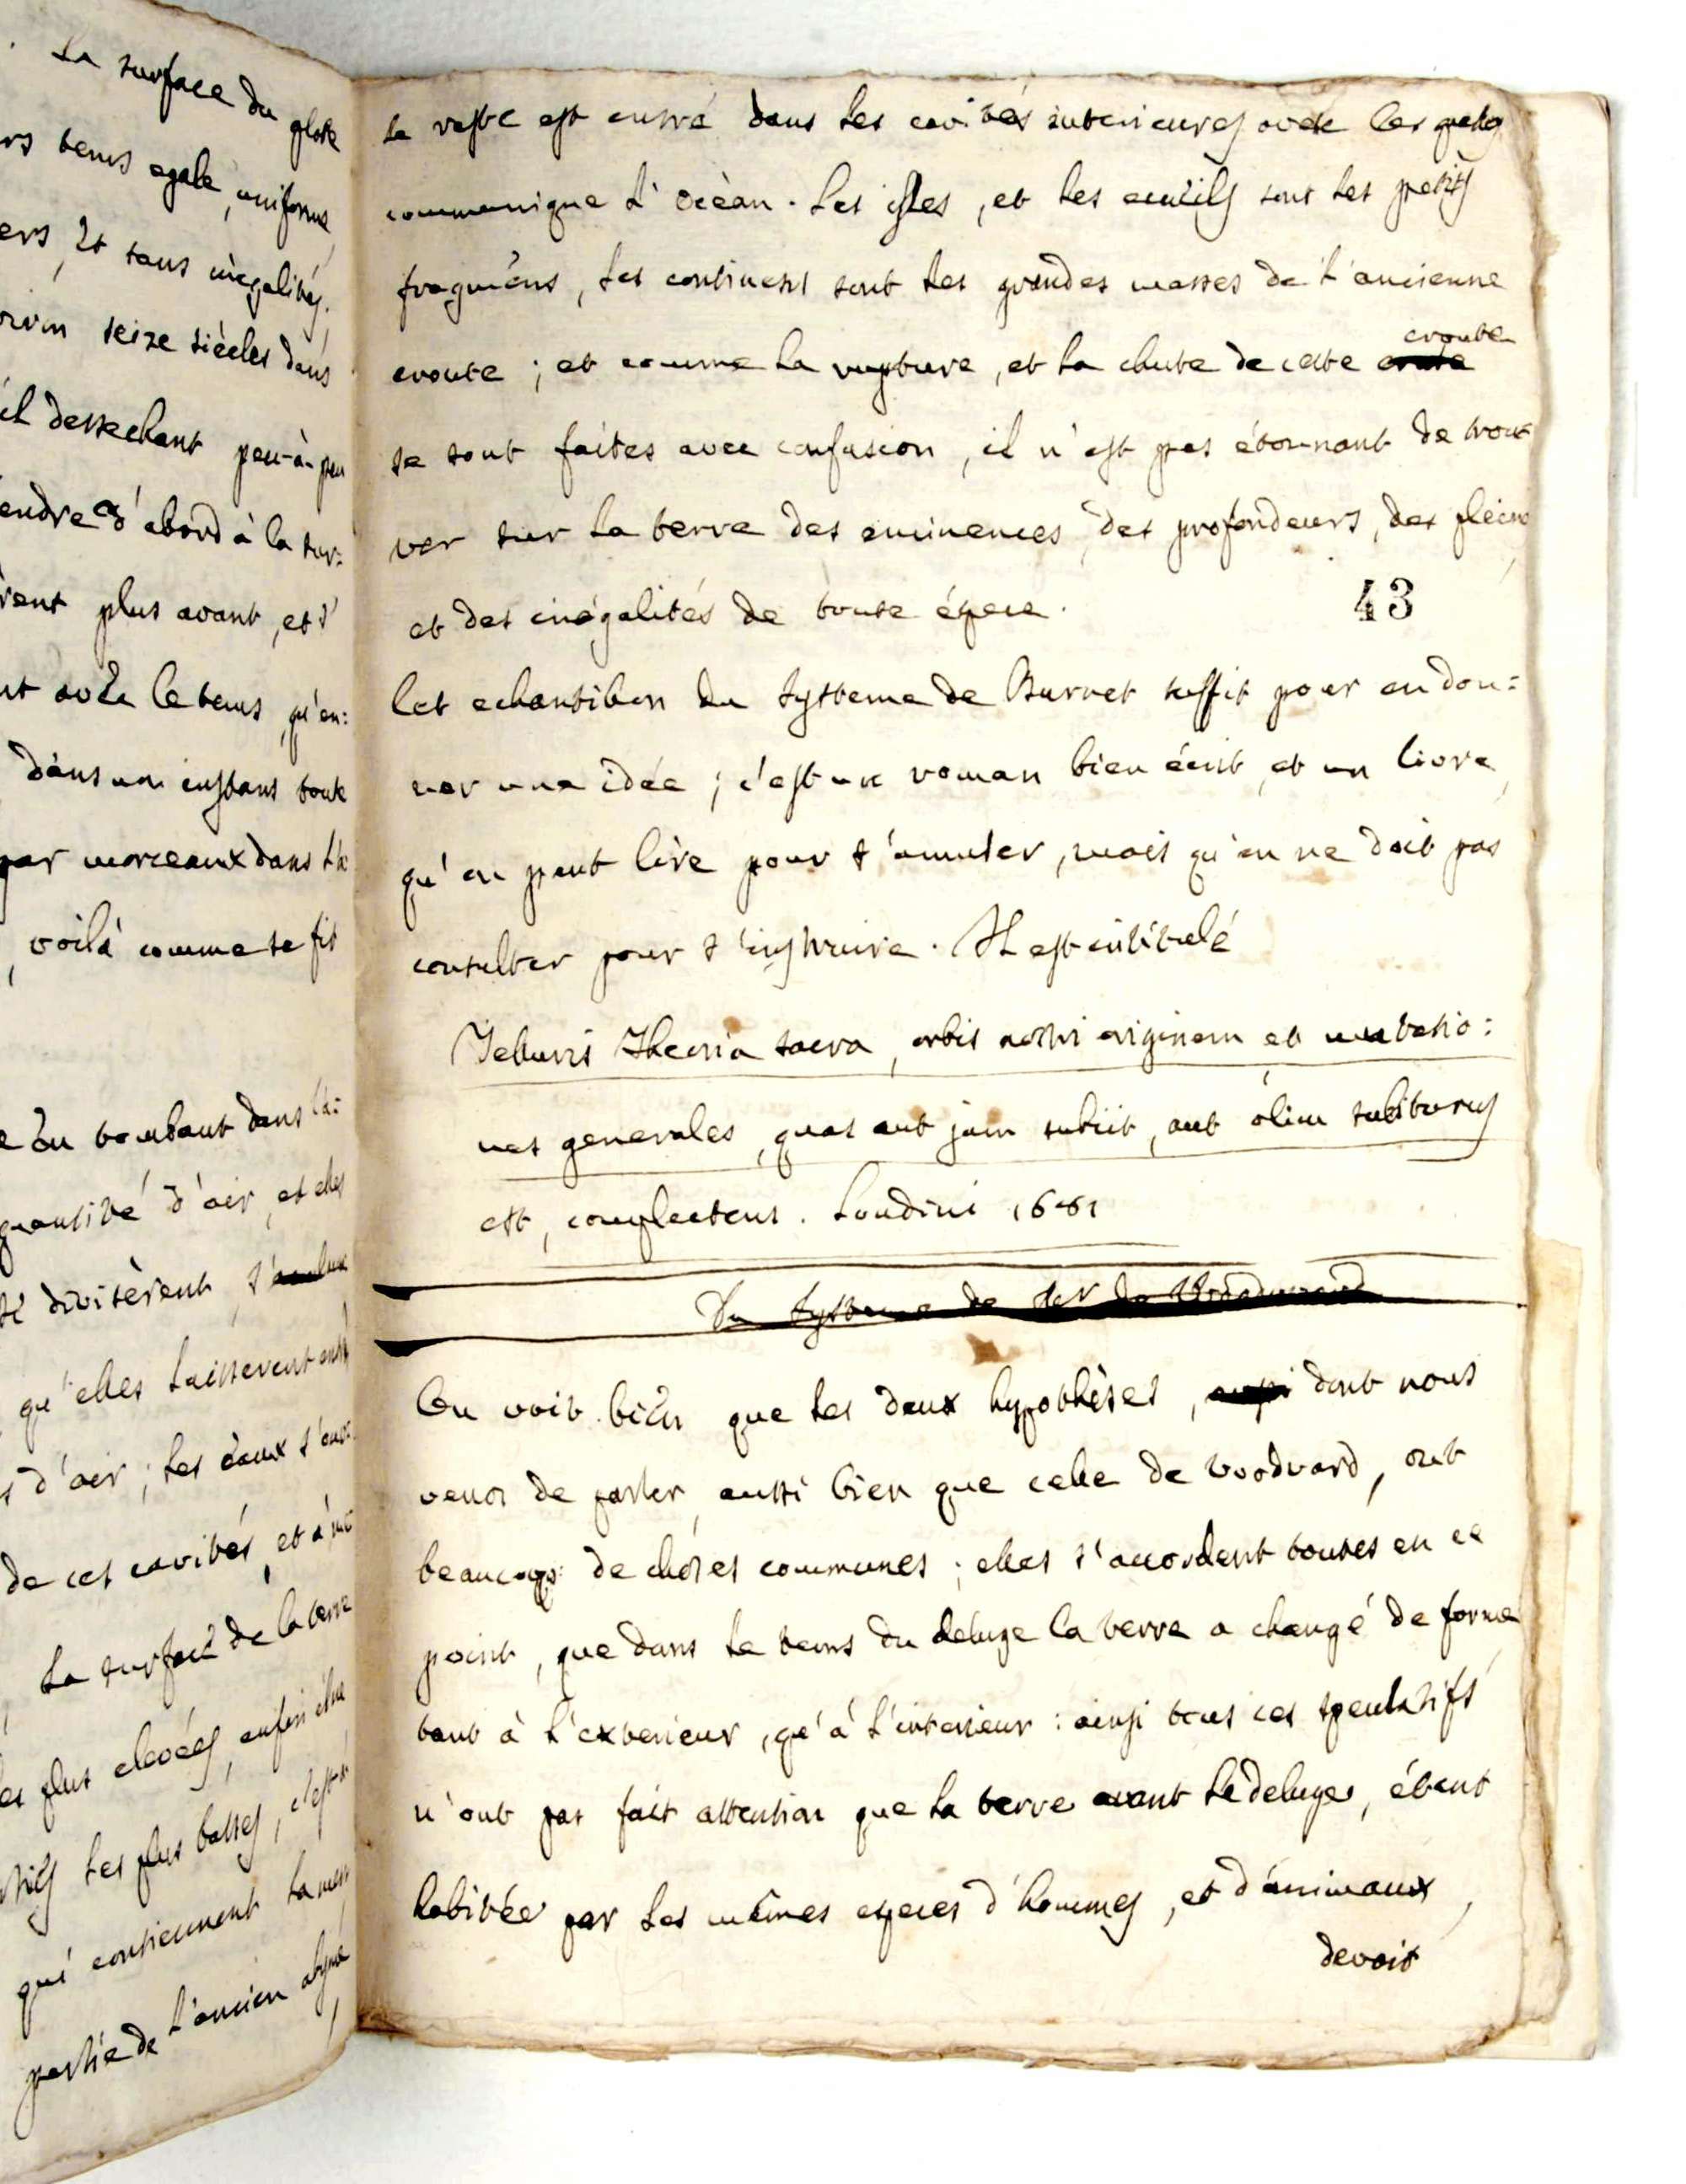 La surface du globe
rs tems egale, uniforme
ers, et sans inegalités.
seize siècles dans
il dessechant peu-à-peu
endre d'abord à la sur:
rent plus avant, et s'
nt avec le tems, qu'en:
dans un instans toute
par morceaux dans l'a
, voilà comme se fit
e en tombant dans l'a:
quantité d'air, et elles
se divisèrent, s'
qu'elles laisserent
s d'air; les eaux s'ouv:
de ces cavités, et à
La surface de la terre
es plus elevées, enfin
les plus basses, c'est à
qui contiennent la mer
partie de l'ancien abyme
le reste est entré dans les cavités interieures avec les quelles
communique l'océan. Les isles, et les ecueils sont les petits
fragmens, les continens sont les grandes masses de l'ancienne
croute; et comme la rupture, et la chute de cette croute
se sont faites avec confusion, il n'est pas étonnant de trou
ver sur la terre des eminences, des profondeurs, des pleines
et des inégalités de toute épece.
43
Cet echantillon du Systeme de Burnet suffit pour en don:
ner une idée; c'est un roman bien écrit, et un livre,
qu'on peut lire pour s'amuser, mais qu'on ne doit pas
consulter pour s'instruire. Il est intitulé
Telluris Theoria sacra, orbis nostri originem et mutatio:
nes generales, quas aut jam subiit, aut olim subiturus
est, complectens. Londini 1681
Du Systeme de Woodward
On voit bien que les deux hypothèses, dont nous
venos de parler, aussi bien que celle de Woodvard, ont
beaucoup de choses communes; elles s'accordent toutes en ce
point, que dans le tems du deluge la terre a changé de forme
tant à l'exterieur, qu'à l'interieur: ainsi tous ces speculatifs
n'ont pas fait attention que la terre avant le deluge, étant
habitée par les mêmes especes d'hommes, et d'animaux,
devoit